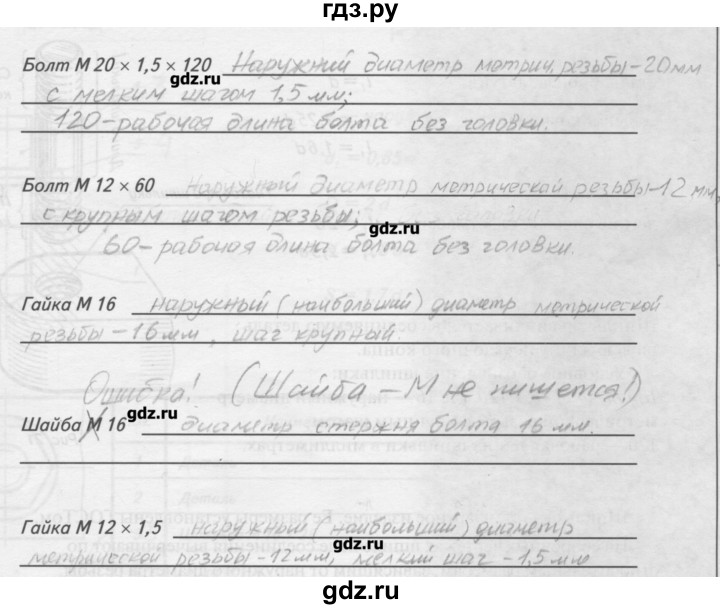 гдз.ру
Болт М 20 × 1,5 × 120 Наружний диаметр метрич. резьбы – 20 мм
gdz.ru
с мелким шагом 1,5 мм;
120 – рабочая длина болта без головки.
Болт М 12 × 60 Наружный диаметр метрической резьбы – 12 мм,
с крупным шагом резьбы;
gdz.ru
60 – рабочая длина болта без головки.
Гайка М 16 наружный (наибольший) диаметр метрической
резьбы – 16 мм, шаг крупный.
Ошибка! (Шайба – М не пишется!)
gdz.ru
Шайба М 16 диаметр стержня болта 16 мм.
Гайка М 12 × 1,5 наружный (наибольший) диаметр
gdz.ru
метрической резьбы – 12 мм, мелкий шаг – 1,5 мм
gdz.ru